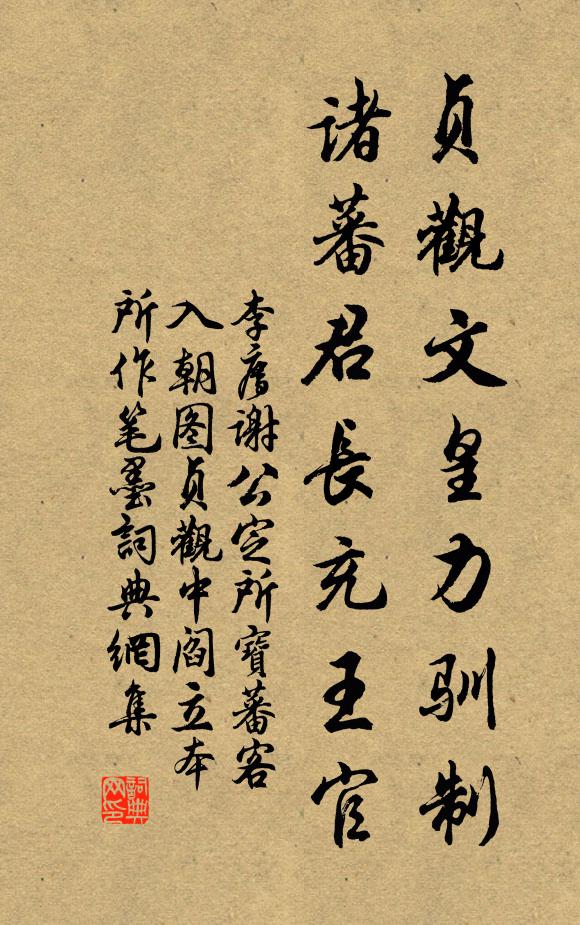 貞觀文皇力馴制
諸蕃君長充王官
李廌謝公定所寶蕃客
入朝图貞觀中阎立本
所作笔墨詞典網集
詞典网印